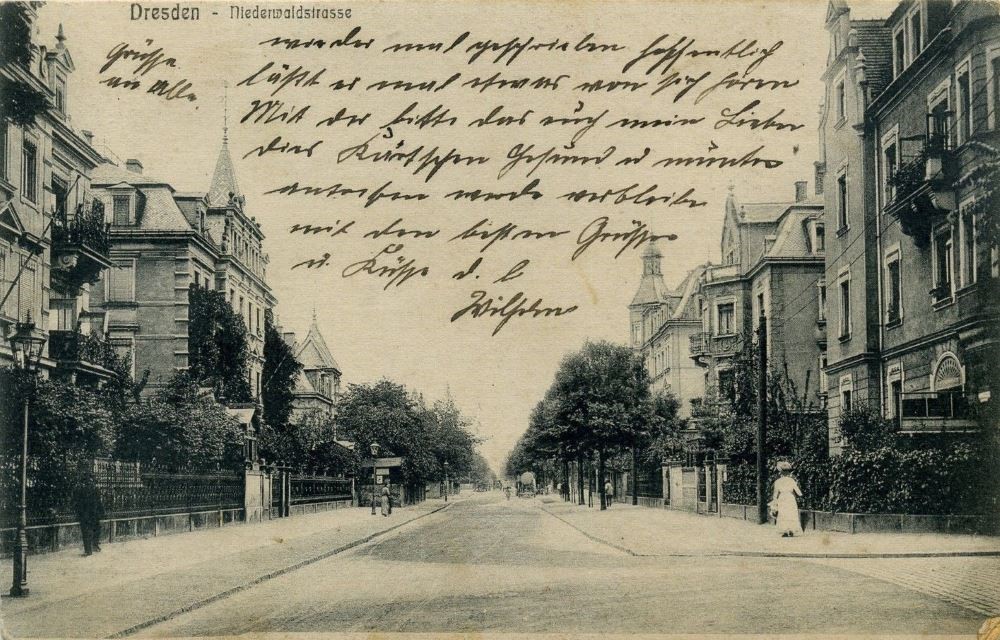 Dresden - Niederwaldstrasse
Grüsse
an Alle.
wieder mal geschrieben hoffentlich
läßt er mal etwas von sich hören
Mit der bitte das euch mein Lieber
dies Kärtschen Gesund u munter
antreffen werde verbleibe
mit den besten Grüssen
u. Küsse d. l
Wilhelm